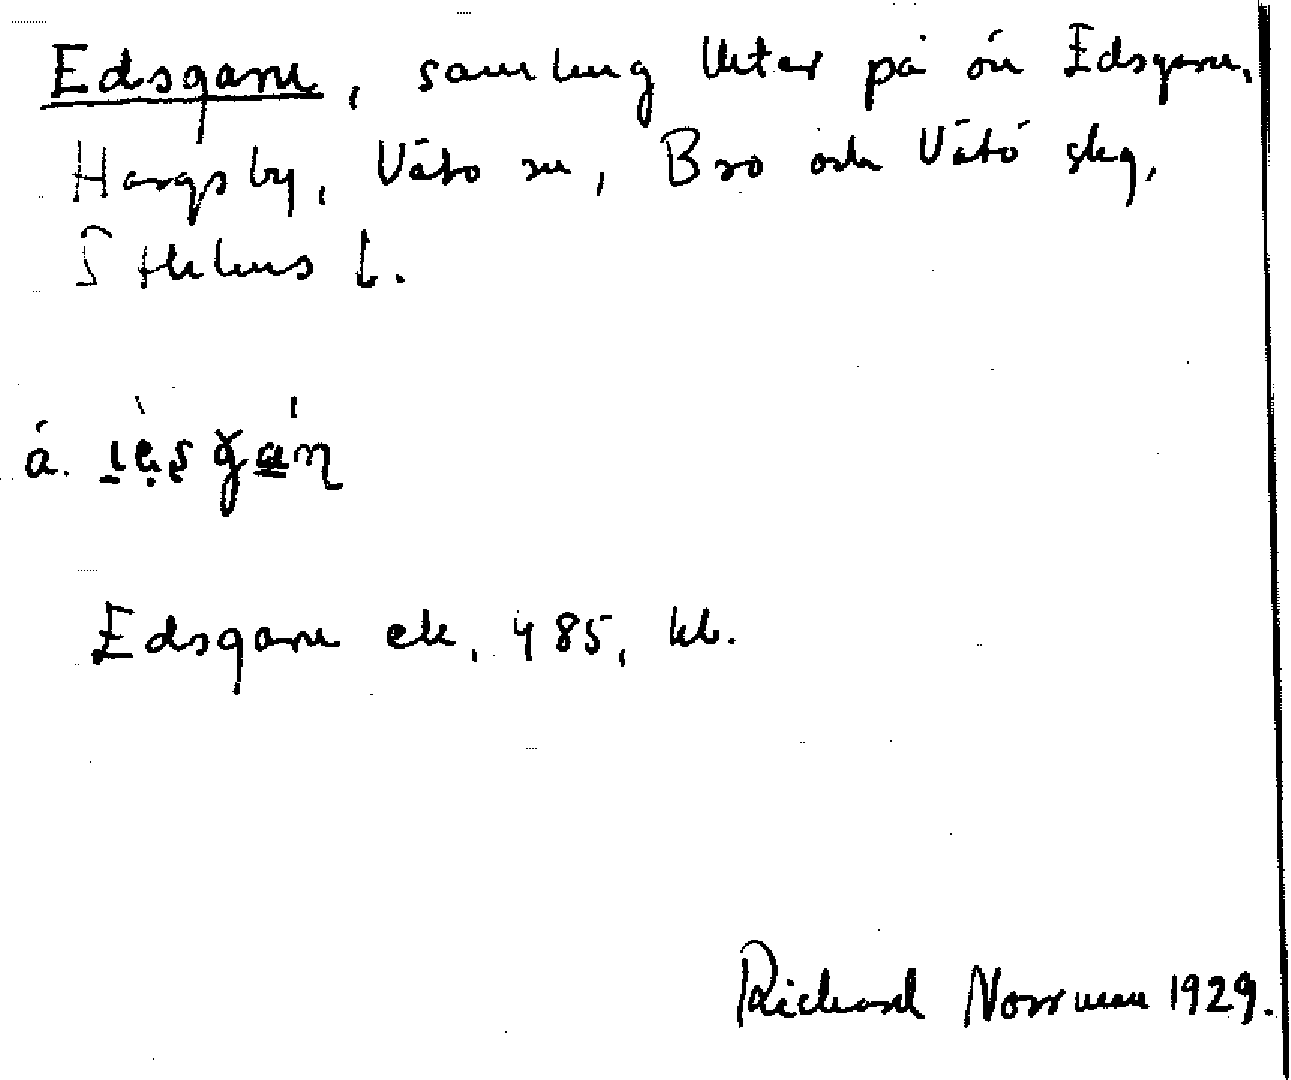 Edsgarn, samling täkter på ön Edsgarn,
Hargsby, Vätö sn, Bro och Vätö skg,
Sthlms l.
å.
Edsgarn ek, 485, kb.
Richard Norrman 1929.